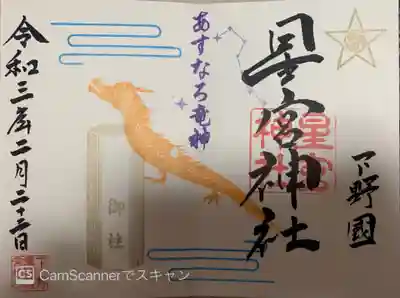 下野國
星宮神社
星宮神社
あすなろ竜神
御柱
令和三年二月二十三日
CS CamScannerでスキャン